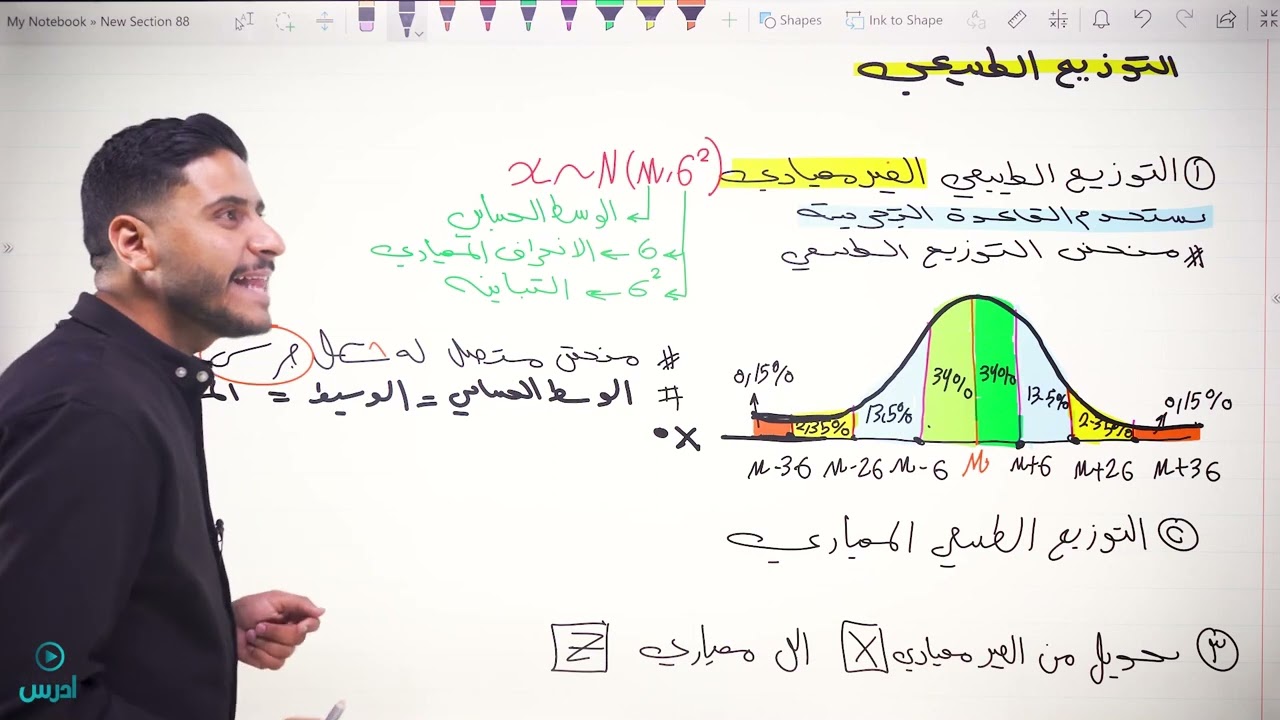 My Notebook » New Section 88
Shapes
Ink to Shape
التوزيع الطبيعي
① التوزيع الطبيعي الغير معياري X~N(μ,σ²)
نستخدم القاعدة التجريبية
الوسط الحسابي
# منحنى التوزيع الطبيعي
σ ← الانحراف المعياري
σ² ← التباين
# منحنى متصل له شكل جرسي
# الوسط الحسابي = الوسيط =
0,15% 2,35% 13,5% 34% 34% 13.5% 2.35% 0,15%
• X
μ-3σ μ-2σ μ-σ μ μ+σ μ+2σ μ+3σ
② التوزيع الطبيعي المعياري
③ تحويل من الغير معياري X الى معياري Z
ادرس